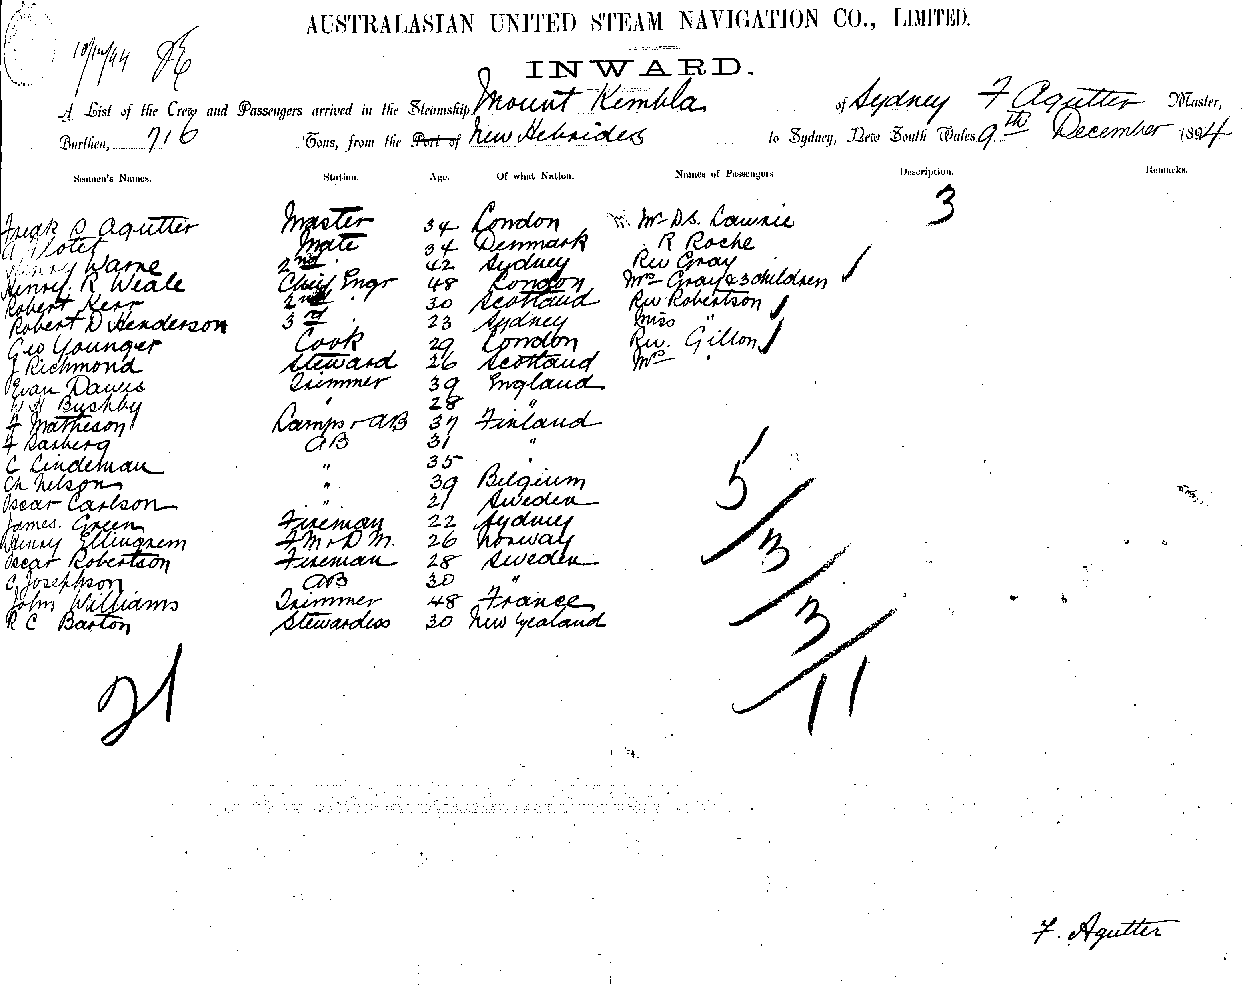 AUSTRALASIAN UNITED STEAM NAVIGATION CO., LIMITED.
10/12/94
INWARD.
A List of the Crew and Passengers arrived in the Steamship Mount Kembla of Sydney F Agutter Master,
Burthen, 716 Tons, from the Port of New Hebrides to Sydney, New South Wales, 9th December 1894
Seamen's Names. Station. Age. Of what Nation. Names of Passengers Description. Remarks.
3
Fredk Agutter Master 34 London Mr D.S. Lawrie
Mate 34 Denmark R Roche
Henry Warne 2nd " 42 Sydney Rev Gray
Henry R Weale Chief Engr 48 London Mrs Gray & 3 children
Robert Kerr 2nd " 30 Scotland Rev Robertson
Robert D Henderson 3rd 23 Sydney Miss "
Geo Younger Cook 29 London Rev. Gillon
J Richmond Steward 26 Scotland Mrs "
Evan Davis Trimmer 39 England
W H Bushby " 28 "
F Matheson Lamps & AB 37 Finland
F AB 31 "
C Lindeman " 35 "
Ch Nelson " 39 Belgium
Oscar Carlson " 21 Sweden
James Green Fireman 22 Sydney
Henry Ellingsem F M & D M. 26 Norway
Oscar Robertson Fireman 28 Sweden
C Josephson AB 30 "
John Williams Trimmer 48 France
R C Barton Stewardess 30 New Zealand
5/3/3/11
21
F. Agutter